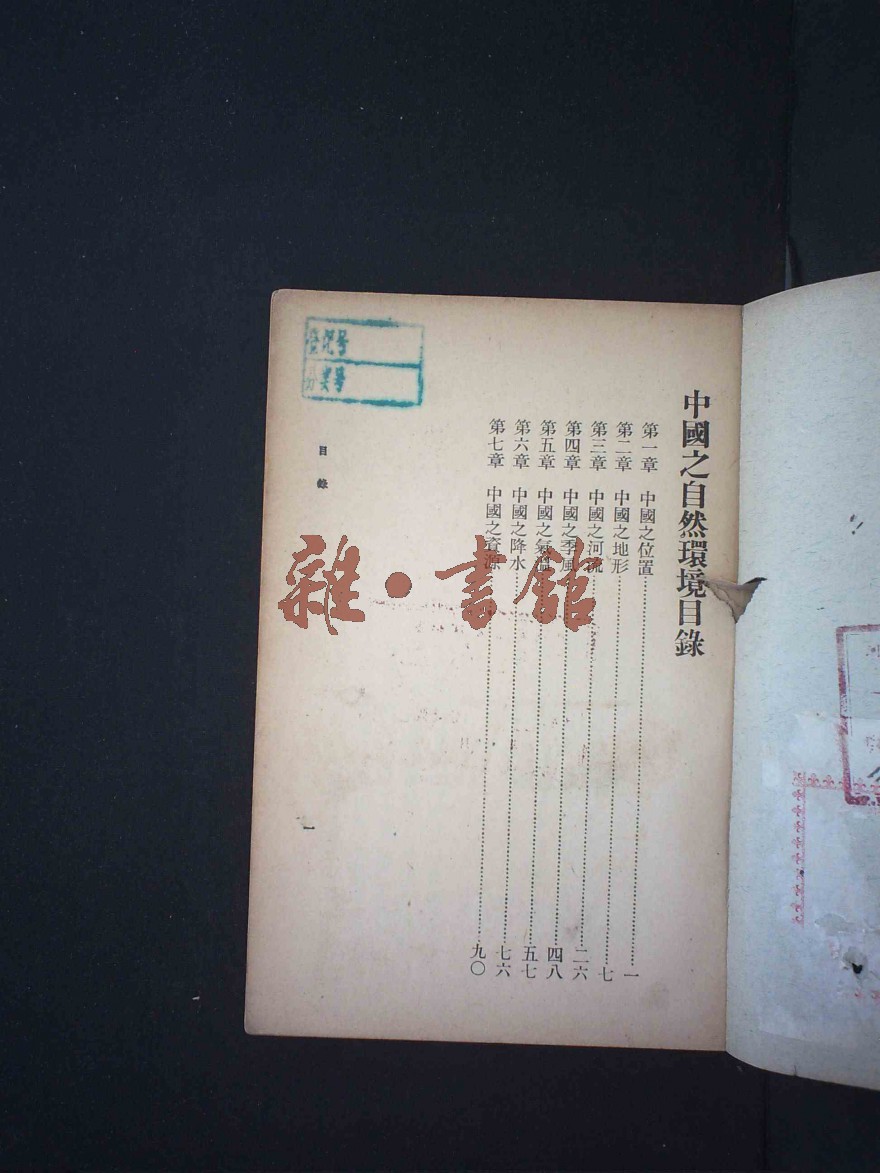 中國之自然環境目錄
第一章 中國之位置……一
第二章 中國之地形……七
第三章 中國之河流……二六
第四章 中國之季風……四八
第五章 中國之氣溫……五七
第六章 中國之降水……七六
第七章 中國之資源……九〇
目錄
一
登记号
分类号
雜·書館